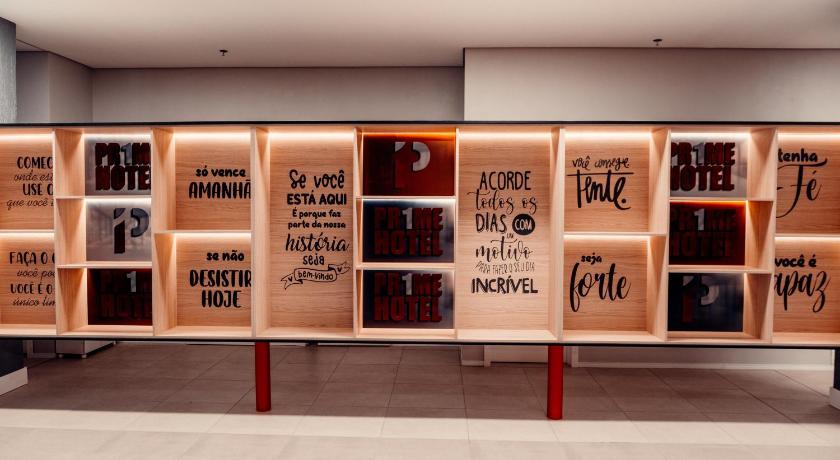 COMEC
onde est
USE O
que você
FAÇA O
você pod
VOCÊ É O
único lim
PR1ME
HOTEL
1P
PR1ME
HOTEL
só vence
AMANHÃ
se não
DESISTIR
HOJE
Se você
ESTÁ AQUI
É porque faz
parte da nossa
história
seja
bem-vindo
1P
PR1ME
HOTEL
PR1ME
HOTEL
ACORDE
todos os
DIAS COM
um
motivo
PARA FAZER O SEU DIA
INCRÍVEL
você consegue
Tente.
seja
forte
PR1ME
HOTEL
PR1ME
HOTEL
1P
tenha
Fé
você é
apaz